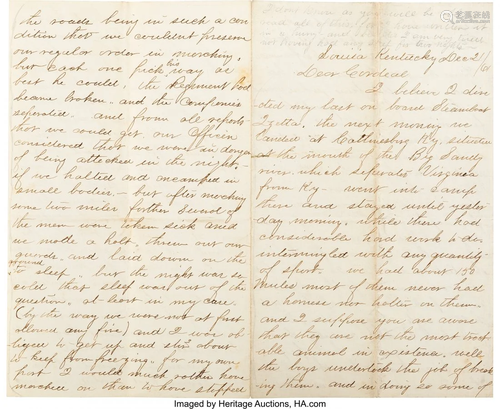 Louisa Kentucky Dec 21/61
Dear Cordeal
I believe I dired
my last on board Steamboat
Izetta. the next morning we
landed at Catlinsburg Ky. situated
at the mouth of the Big Sandy
river which seperates Virginia
from Ky- went into Camp
there and stayed until yester
day morning. while there had
considerable hard work to do.
intermingled with any quantity
of sport. we had about 100
mules most of them never had
a harness nor halter on them-
and I suppose you are aware
that they are not the most tract
able animal in existence. well
the boys undertook the job of break
ing them. and in doing so some of
(the roads being in such a con
dition that we couldnt preserve
our regular order in marching,
but each one pick his way as
best he could. the Regiment had
became broken- and the companies
seperated- and from all reports
that we could get our Officers
considered that we were in danger
of being attacked in the night-
if we halted and encamped in
small bodies,- but after marching
some two miles further several of
the men were taken seek and
we made a halt. threw out our
guards. and laid down on the
ground to sleep. but the night was so
cold that sleep was out of the
question. at least in my case.
(by the way we were not at first
allowed any fire) and I was ob
liged to get up and stir about
to keep from freezing. for my own
part I would much rather have
marched on than to have stopped
Imaged by Heritage Auctions, HA.com